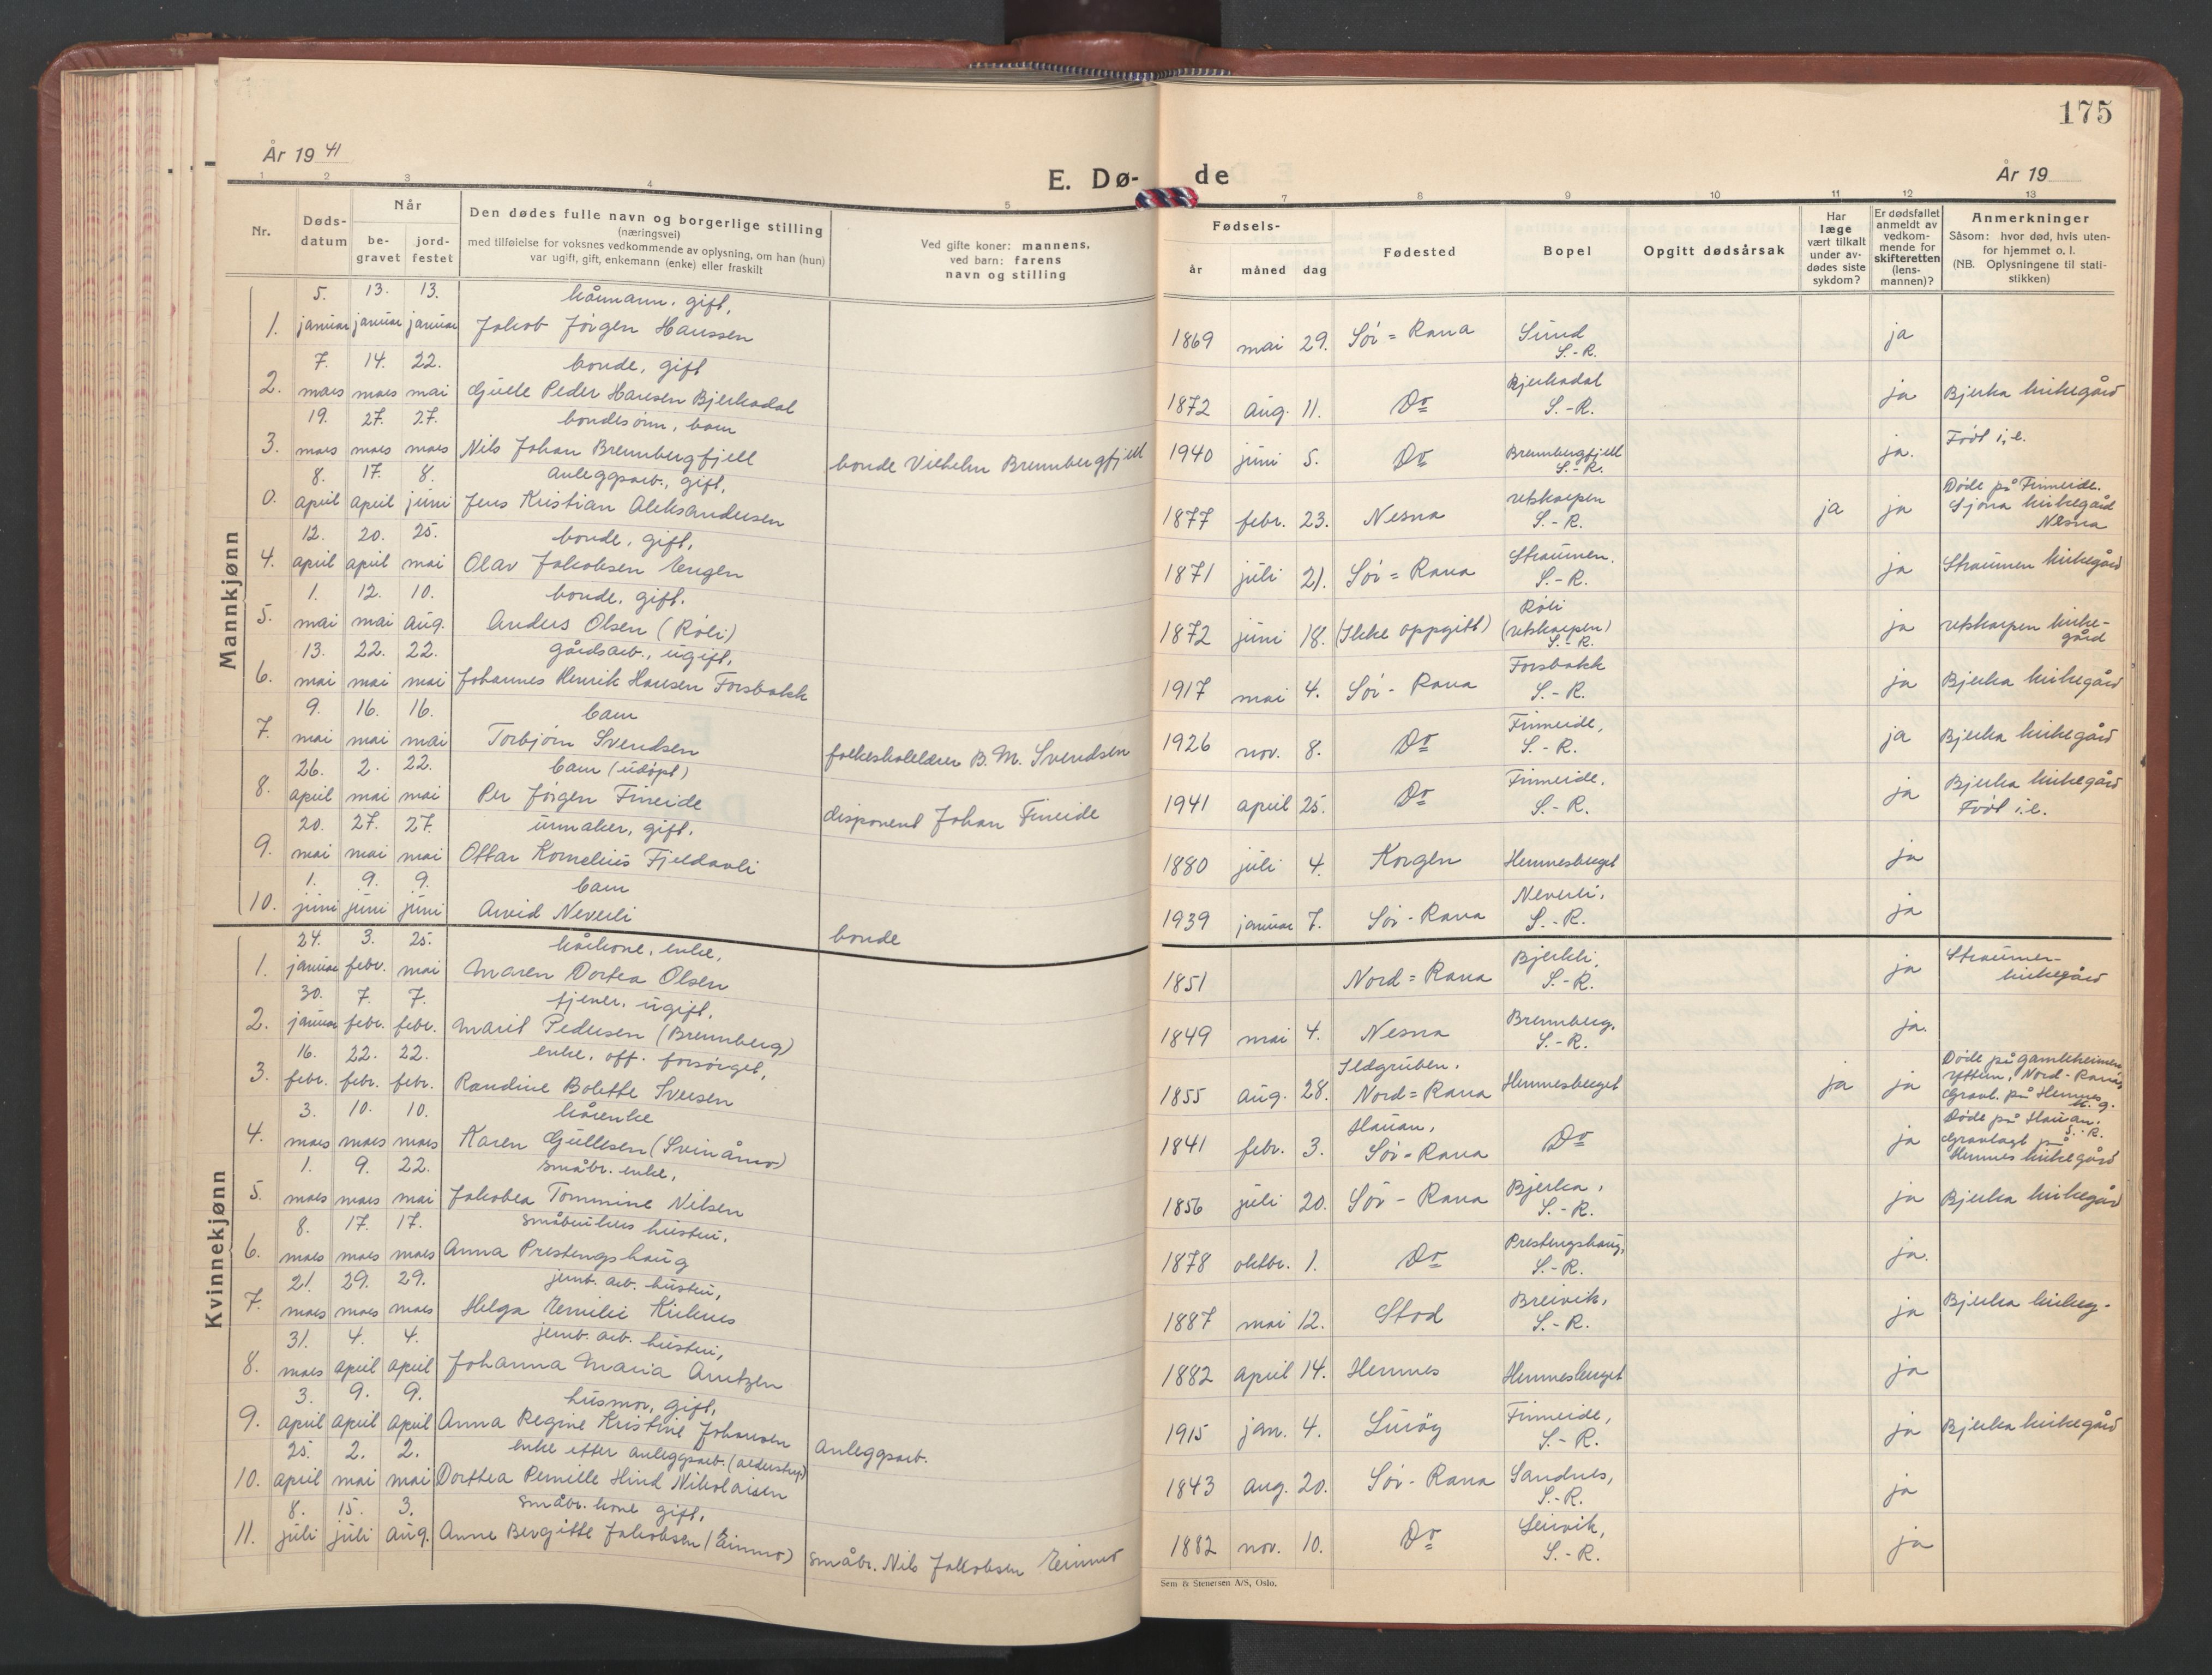 175
År 1941
E. Dø-
de
År 19
1 2 3 4 5 7 8 9 10 11 12 13
Nr.
Døds-
datum
Når
be-
gravet
jord-
festet
Den dødes fulle navn og borgerlige stilling
(næringsvei)
med tilføielse for voksnes vedkommende av oplysning, om han (hun)
var ugift, gift, enkemann (enke) eller fraskilt
Ved gifte koner: mannens,
ved barn: farens
navn og stilling
Fødsels-
år måned dag
Fødested
Bopel
Opgitt dødsårsak
Har
læge
vært tilkalt
under av-
dødes siste
sykdom?
Er dødsfallet
anmeldt av
vedkom-
mende for
skifteretten
(lens-
mannen)?
Anmerkninger
Såsom: hvor død, hvis uten-
for hjemmet o. l.
(NB. Oplysningene til stati-
stikken)
Mannkjønn
5. 13. 13. kårmann, gift,
1. januar januar januar Jakob Jörgen Hanssen 1869 mai 29. Sör=Rana Sund S.-R. ja
7. 14. 22. bonde, gift
2. mars mars mai Gulle Peder Hansen Bjerkadal 1872 aug. 11. Do Bjerkadal S.-R. ja Bjerka kirkegård
19. 27. 27. bondesönn, barn
3. mars mars mars Nils Johan Brennbergfjell bonde Vilhelm Brennbergfjell 1940 juni 5. Do Brennbergfjell S.-R. ja. Född i.e.
8. 17. 8. anleggsarb., gift,
0. april april juni Jens Kristian Aleksandersen 1877 febr. 23. Nesna utskarpen S.-R. ja ja Döde på Finneide. Sjona kirkegård Nesna
12. 20. 25. bonde, gift,
4. april april mai Olav Jakobsen Engen 1871 juli 21. Sör=Rana Straumen. S.-R. ja Straumen kirkegård
1. 12. 10. bonde, gift.
5. mai mai aug. Anders Olsen (Röli) 1872 juni 18. (Ikke oppgitt) Röli (utskarpen) S.-R. ja utskarpen kirke-
gård
13. 22. 22. gårdsarb., ugift,
6. mai mai mai Johannes Henrik Hansen Forsbakk 1917 mai 4. Sör-Rana Forsbakk S.-R. ja Bjerka kirkegård
9. 16. 16. barn
7. mai mai mai Torbjörn Svendsen folkeskolelærer B.M. Svendsen 1926 nov. 8. Do Finneide, S.-R. ja Bjerka kirkegård
26. 2. 22. barn (udöpt)
8. april mai mai Per Jörgen Fineide disponent Johan Fineide 1941 april 25. Do Finneide, S.-R. ja Bjerka kirkegård Född i.e.
20. 27. 27. urmaker, gift.
9. mai mai mai Ottar Kornelius Fjeldavli 1880 juli 4. Korgen Hemnesberget ja
1. 9. 9. barn
10. juni juni juni Arvid Neverli bonde 1939 januar 7. Sör-Rana Neverli, S.-R. ja
Kvinnekjønn
24. 3. 25. kårkone, enke,
1. januar febr. mai Maren Dortea Olsen 1851 Nord=Rana Bjerkli, S.-R. ja Straumen-
kirkegård
30. 7. 7. tjener, ugift,
2. januar febr. febr. Marit Pedersen (Brennberg) 1849 mai 4. Nesna Brennberg, S.-R. ja.
16. 22. 22. enke, off. forsörget,
3. febr. febr. febr. Randine Bolette Iversen 1855 aug. 28. Ildgruben, Nord=Rana Hemnesberget ja ja Döde på gamleheimen Ytteren, Nord-Rana, Gravl. på Hemnes k.g.
3. 10. 10. kårenke
4. mars mars mars Karen Gullesen (Svinåmo) 1841 febr. 3. Hauan, Sör-Rana Do ja Döde på Hauan, S.-R. Gravlagt på Hemnes kirkegård
1. 9. 22. småbr. enke,
5. mars mars mai Jakobea Tommine Nilsen 1856 juli 20. Sör-Rana Bjerka, S.-R. ja Bjerka kirkegård
8. 17. 17. småbrukers hustru,
6. mars mars mars Anna Prestengshaug 1878 oktbr. 1. Do Prestengshaug, S.-R. ja.
21. 29. 29. jernb. arb. hustru,
7. mars mars mars Helga Emilie Kirknes 1887 mai 12. Stod Breivik, S.-R. ja Bjerka kirkeg.
31. 4. 4. jernb. arb. hustru,
8. mars april april Johanna Maria Arntzen 1882 april 14. Hemnes Hemnesberget ja
3. 9. 9. husmor, gift,
9. april april april Anna Regine Kristine Johansen anleggsarb. 1915 jan. 4. Luröy Finneide, S.-R. ja Bjerka kirkegård
25. 2. 2. enke etter anleggsarb. (alderstryg)
10. april mai mai Dorthea Pernille Hind Nikolaisen 1843 aug. 20. Sör-Rana Sandnes, S.-R. ja
8. 15. 3. småbr. kone gift,
11. juli juli aug. Anne Bergitte Jakobsen (Einmo) småbr. Nils Jakobsen Einmo 1882 nov. 10. Do Leirvik, S.-R. ja
Sem & Stenersen A/S, Oslo.